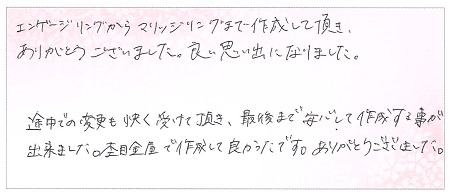 エンゲージリングからマリッジリングまで作成して頂き、
ありがとうございました。良い思い出になりました。
途中での変更も快く受けて頂き、最後まで安心して作成する事が
出来ました。杢目金屋で作成して良かったです。ありがとうございました。